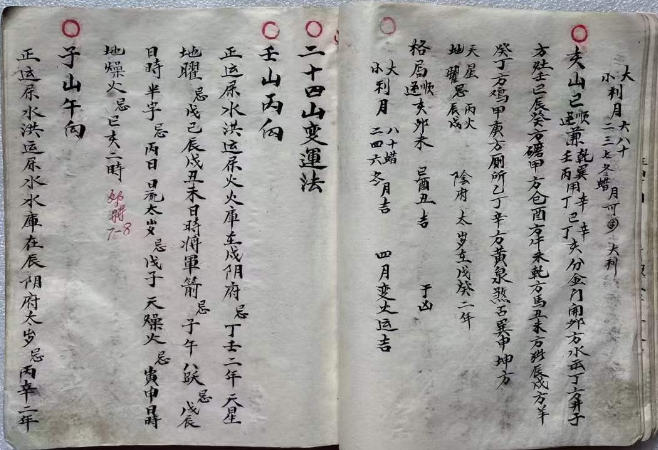 大 六八十
小利月 二三七冬蜡月可 大科
亥山巳 順逆 兼 乾巽 壬丙 用 辛辛 丁巳丁亥分金門開卯方水出丁方井子
方灶壬巳辰癸方磨甲方仓酉方牛未乾方馬丑未方猪辰戌方羊
癸丁方鸡甲庚方厕所乙丁辛方黄泉煞占巽申坤方
天星 丙火
地曜忌辰戌 陰府 太岁在戊癸二年
格局 順逆 亥卯未 巳酉丑吉 子凶
大 八十蜡
小利月 二四六冬月吉 四月变火运吉
二十四山变運法
壬山丙向
正运屎水洪运屎火火庫在戌阴府忌丁壬二年天星
地曜忌戊己辰戌丑未日時将軍箭忌子午八跃忌戊辰
日時半字忌丙日日流太岁忌戊子天燥火忌寅申日時
地燥火忌巳亥二時
7-8
子山午向
正运屎水洪运屎水水庫在辰阴府太岁忌丙辛二年